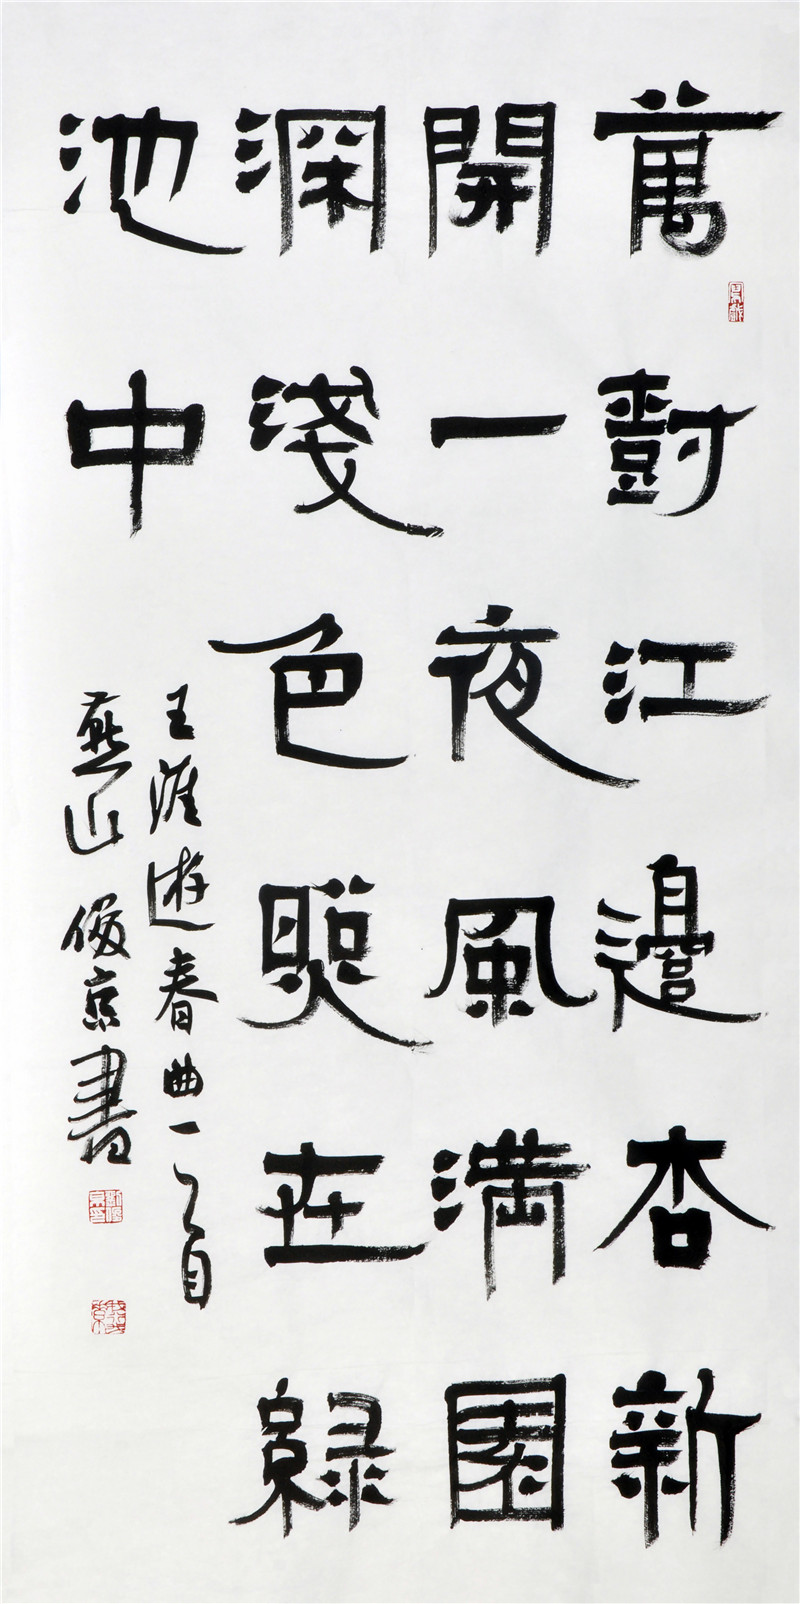 萬樹江邊杏新
開一夜風滿園
深淺色照在綠
池中
王涯遊春曲一首
燕山俊京書